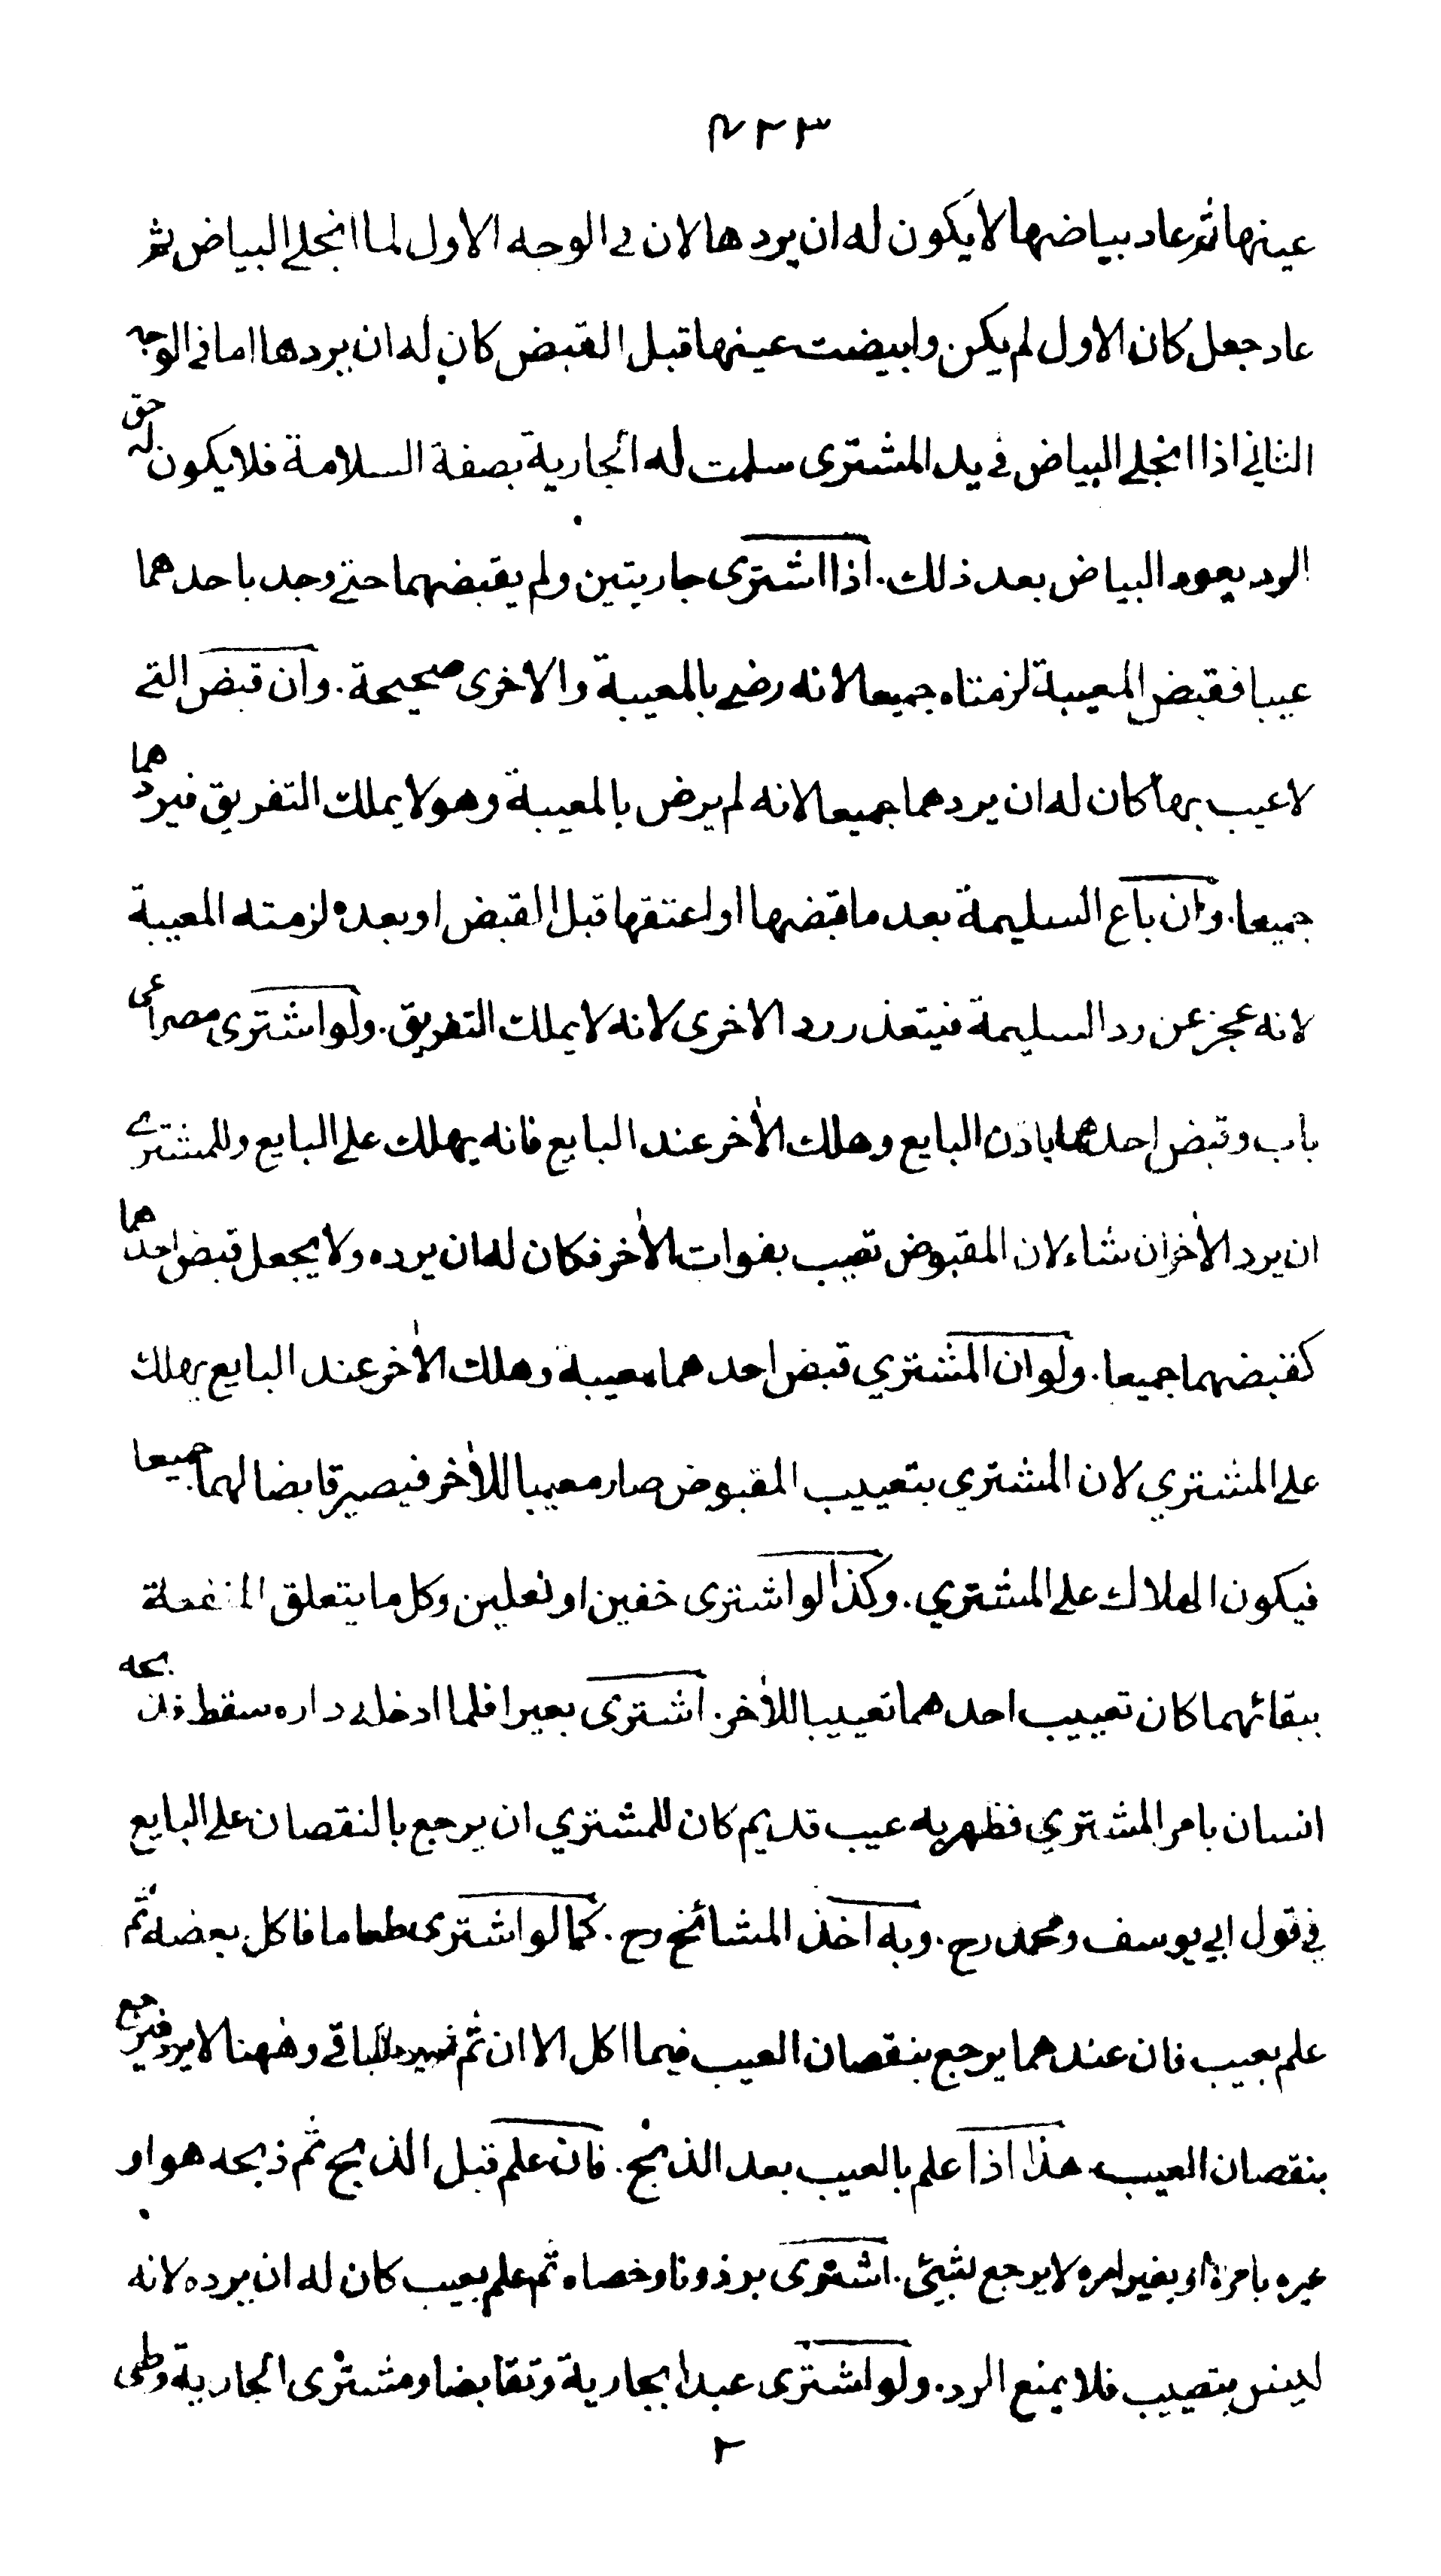 ٤٢٣
عينها ثم عاد بياضها لا يكون له ان يردها لان في الوجه الاول لما انجلى البياض ثم
عاد جعل كان الاول لم يكن وابيضت عينها قبل القبض كان له ان يردها اما في الوجه
الثاني اذا انجلى البياض في يد المشترى سلمت له الجارية بصفة السلامة فلا يكون له حق
الرد بعود البياض بعد ذلك. اذا اشترى جاريتين ولم يقبضهما حتى وجد باحدهما
عيبا فقبض المعيبة لزمتاه جميعا لانه رضي بالمعيبة والاخرى صحيحة. وان قبض التي
لا عيب بها كان له ان يردهما جميعا لانه لم يرض بالمعيبة وهو لا يملك التفريق فيردهما
جميعا. وان باع السليمة بعد ما قبضها او اعتقها قبل القبض او بعده لزمته المعيبة
لانه عجز عن رد السليمة فيتعذر رد الاخرى لانه لا يملك التفريق. ولو اشترى مصراعي
باب وقبض احدهما باذن البايع وهلك الأخر عند البايع فانه يهلك على البايع وللمشتري
ان يرد الأخر ان شاء لان المقبوض تعيب بفوات الأخر فكان له ان يرده ولا يجعل قبض احدهما
كقبضهما جميعا. ولو ان المشتري قبض احدهما معيبة وهلك الأخر عند البايع يهلك
على المشتري لان المشتري بتعييب المقبوض صار معيبا للأخر فيصير قابضا لهما جميعا
فيكون الهلاك على المشتري. وكذا لو اشترى خفين او نعلين وكل ما يتعلق المنفعة
ببقائهما كان تعييب احدهما تعييبا للأخر. اشترى بعيرا فلما ادخل داره سقط فذبحه
انسان بامر المشتري فظهر به عيب قديم كان للمشتري ان يرجع بالنقصان على البايع
في قول ابي يوسف ومحمد رح. وبه اخذ المشائخ رح. كما لو اشترى طعاما فاكل بعضه ثم
علم بعيب فان عندهما يرجع بنقصان العيب فيما اكل الا ان ثم يرد الباقي وههنا لا يرد فيرجع
بنقصان العيب هذا اذا علم بالعيب بعد الذبح. فان علم قبل الذبح ثم ذبحه هو او
غيره بامره او بغير امره لا يرجع بشيئ. اشترى برذونا وخصاه ثم علم بعيب كان له ان يرده لانه
ليس بتعييب فلا يمنع الرد. ولو اشترى عبدا بجارية وتقابضا ومشترى الجارية وطئ
٢